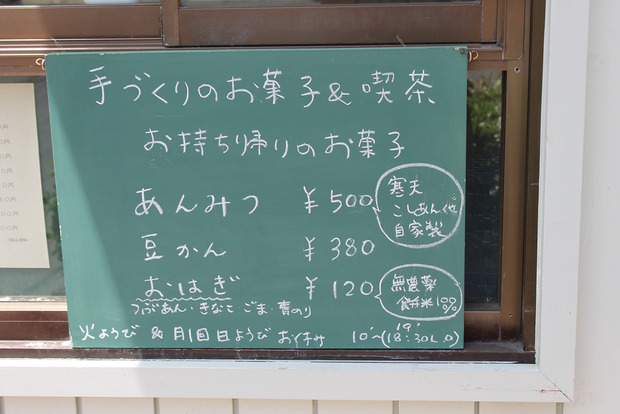 手づくりのお菓子&喫茶
お持ち帰りのお菓子
あんみつ ¥500
寒天
こしあん他
自家製
豆かん ¥380
おはぎ ¥120
つぶあん・きなこ ごま・青のり
無農薬
餅米100%
火ようび & 月1回日ようび お休み 10~19(18:30L.O)
円
円
0円
0円
00円
00円